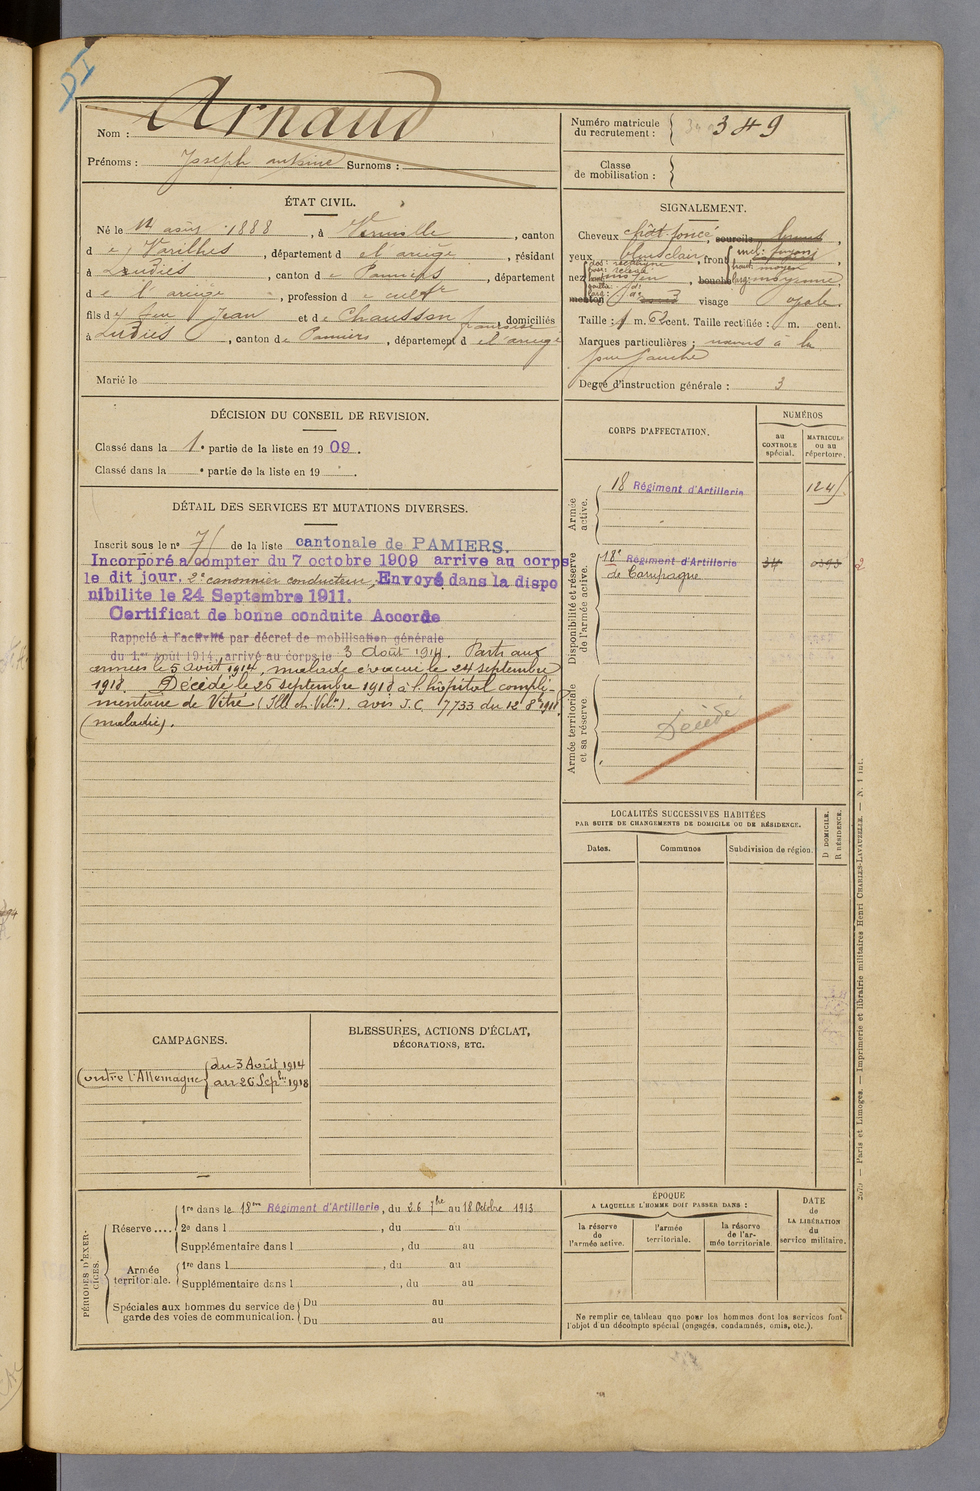 DI
Nom : Arnaud
Prénoms : Joseph antoine Surnoms :
Numéro matricule du recrutement : 349
Classe de mobilisation :
ÉTAT CIVIL.
Né le 12 août 1888, à Verniolle, canton
d e Varilhes, département d e l'ariège, résidant
à Ludiès, canton d e Pamiers, département
d e l'ariège, profession d e cultr
fils d e feu Jean et d e Chausson françoise domiciliés
à Ludiès, canton de Pamiers, département d e l'ariège
Marié le
SIGNALEMENT.
Cheveux chât. foncé, sourcils bruns,
yeux bleus clair, front incl: fuyant
haut: moyen
larg: moyenne,
nez
bouche
menton visage ovale
Taille : 1 m. 62 cent. Taille rectifiée : m. cent.
Marques particulières : naevus à la
joue gauche
Degré d'instruction générale : 3
DÉCISION DU CONSEIL DE REVISION.
Classé dans la 1e partie de la liste en 1909.
Classé dans la e partie de la liste en 19 .
DÉTAIL DES SERVICES ET MUTATIONS DIVERSES.
Inscrit sous le n° 71 de la liste cantonale de PAMIERS.
Incorporé a compter du 7 octobre 1909 arrive au corps
le dit jour. 2e canonnier conducteur, Envoyé dans la dispo
nibilite le 24 Septembre 1911.
Certificat de bonne conduite Accorde
Rappelé à l'activité par décret de mobilisation générale
du 1er août 1914, arrivé au corps le 3 Août 1914. Parti aux
armées le 5 août 1914, malade évacué le 24 septembre
1918. Décédé le 26 septembre 1918 à l'hôpital complé-
mentaire de Vitré (Ill. et. Vil.ne). avis J.C. 17733 du 12 8 1918
(maladie).
CORPS D'AFFECTATION.
NUMÉROS
au CONTROLE spécial.
MATRICULE ou au répertoire.
Armée active.
18 Régiment d'Artillerie
Disponibilité et réserve de l'armée active.
18e Régiment d'Artillerie 34
de Campagne
Armée territoriale et sa réserve
Décédé
LOCALITÉS SUCCESSIVES HABITÉES
PAR SUITE DE CHANGEMENTS DE DOMICILE OU DE RÉSIDENCE.
Dates.
Communes
Subdivision de région.
D DOMICILE.
R RÉSIDENCE.
CAMPAGNES.
Contre l'Allemagne du 3 Août 1914
au 26 Sepbre 1918
BLESSURES, ACTIONS D'ÉCLAT,
DÉCORATIONS, ETC.
PÉRIODES D'EXERCICES.
Réserve .... 1re dans le 18me Régiment d'Artillerie, du 26 7bre au 18 Octobre 1913
2e dans l , du au
Supplémentaire dans l , du au
Armée territoriale. 1re dans l , du au
Supplémentaire dans l , du au
Spéciales aux hommes du service de garde des voies de communication. Du au
Du au
ÉPOQUE
A LAQUELLE L'HOMME DOIT PASSER DANS :
la réserve de l'armée active.
l'armée territoriale.
la réserve de l'armée territoriale
DATE
de
LA LIBÉRATION
du
service militaire.
Ne remplir ce tableau que pour les hommes dont les services font
l'objet d'un décompte spécial (engagés, condamnés, omis, etc.).
Paris et Limoges. — Imprimerie et librairie militaires Henri CHARLES-LAVAUZELLE. — N. 1 int.